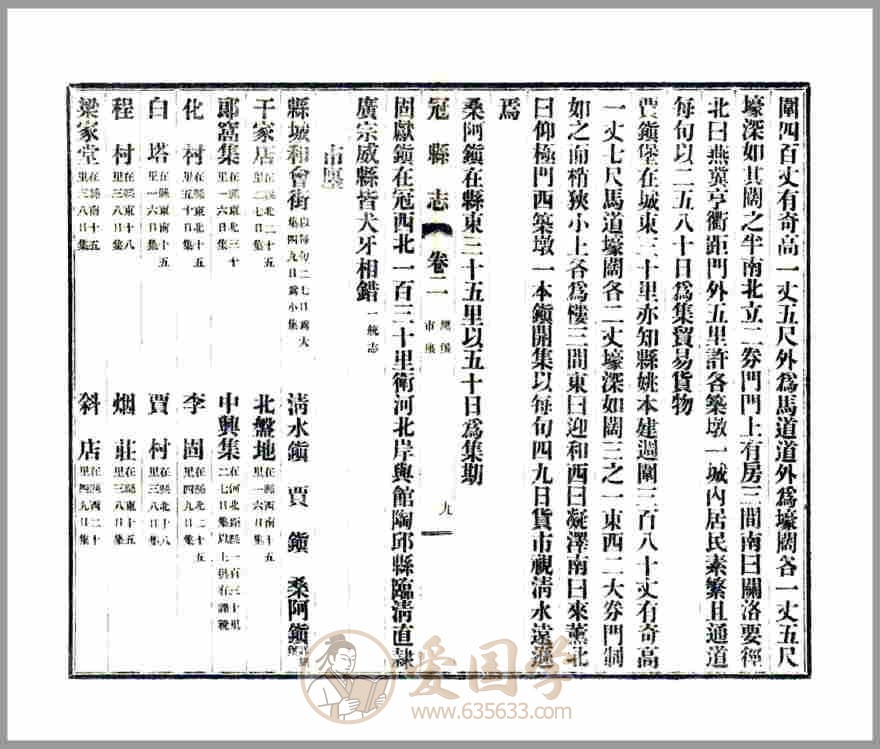 圍四百丈有奇高一丈五尺外爲馬道道外爲壕闊各一丈五尺
壕深如其闊之半南北立二券門門上有房三間南曰關洛要徑
北曰燕冀亨衢距門外五里許各築墩一城內居民素繁且通道
每旬以二五八十日爲集貿易貨物
賈鎮堡在城東三十里亦知縣姚本建週圍三百八十丈有奇高
一丈七尺馬道壕闊各二丈壕深如闊三之一東西二大券門制
如之而稍狹小上各爲樓三間東曰迎和西曰凝澤南曰來薰北
曰仰極門西築墩一本鎮開集以每旬四九日貨市視清水遠遜
焉
桑阿鎮在縣東三十五里以五十日爲集期
冠縣志 卷二 市廛 九
固獻鎮在冠西北一百三十里衛河北岸與館陶邱縣臨清直隸
廣宗威縣皆犬牙相錯一統志
市廛
縣城和會街以每旬二七日爲大集四九日爲小集 清水鎮 賈鎮 桑阿鎮
于家店在縣北二十五里二七日集 北盤地在縣西南十五里一六日集
郎富集在縣東北三十里一六日集 中興集在河北距縣一百三十里二七日集以上俱有課稅
化村在縣東北十五里五十日集 李固在縣北二十五里四九日集
白塔在縣東南十五里一六日集 賈村在縣北十八里三八日集
程村在縣東十八里三八日集 烟莊在縣東十五里三八日集
梁家堂在縣南十五里三八日集 斜店在縣西二十里四九日集
爱国学
www.635633.com